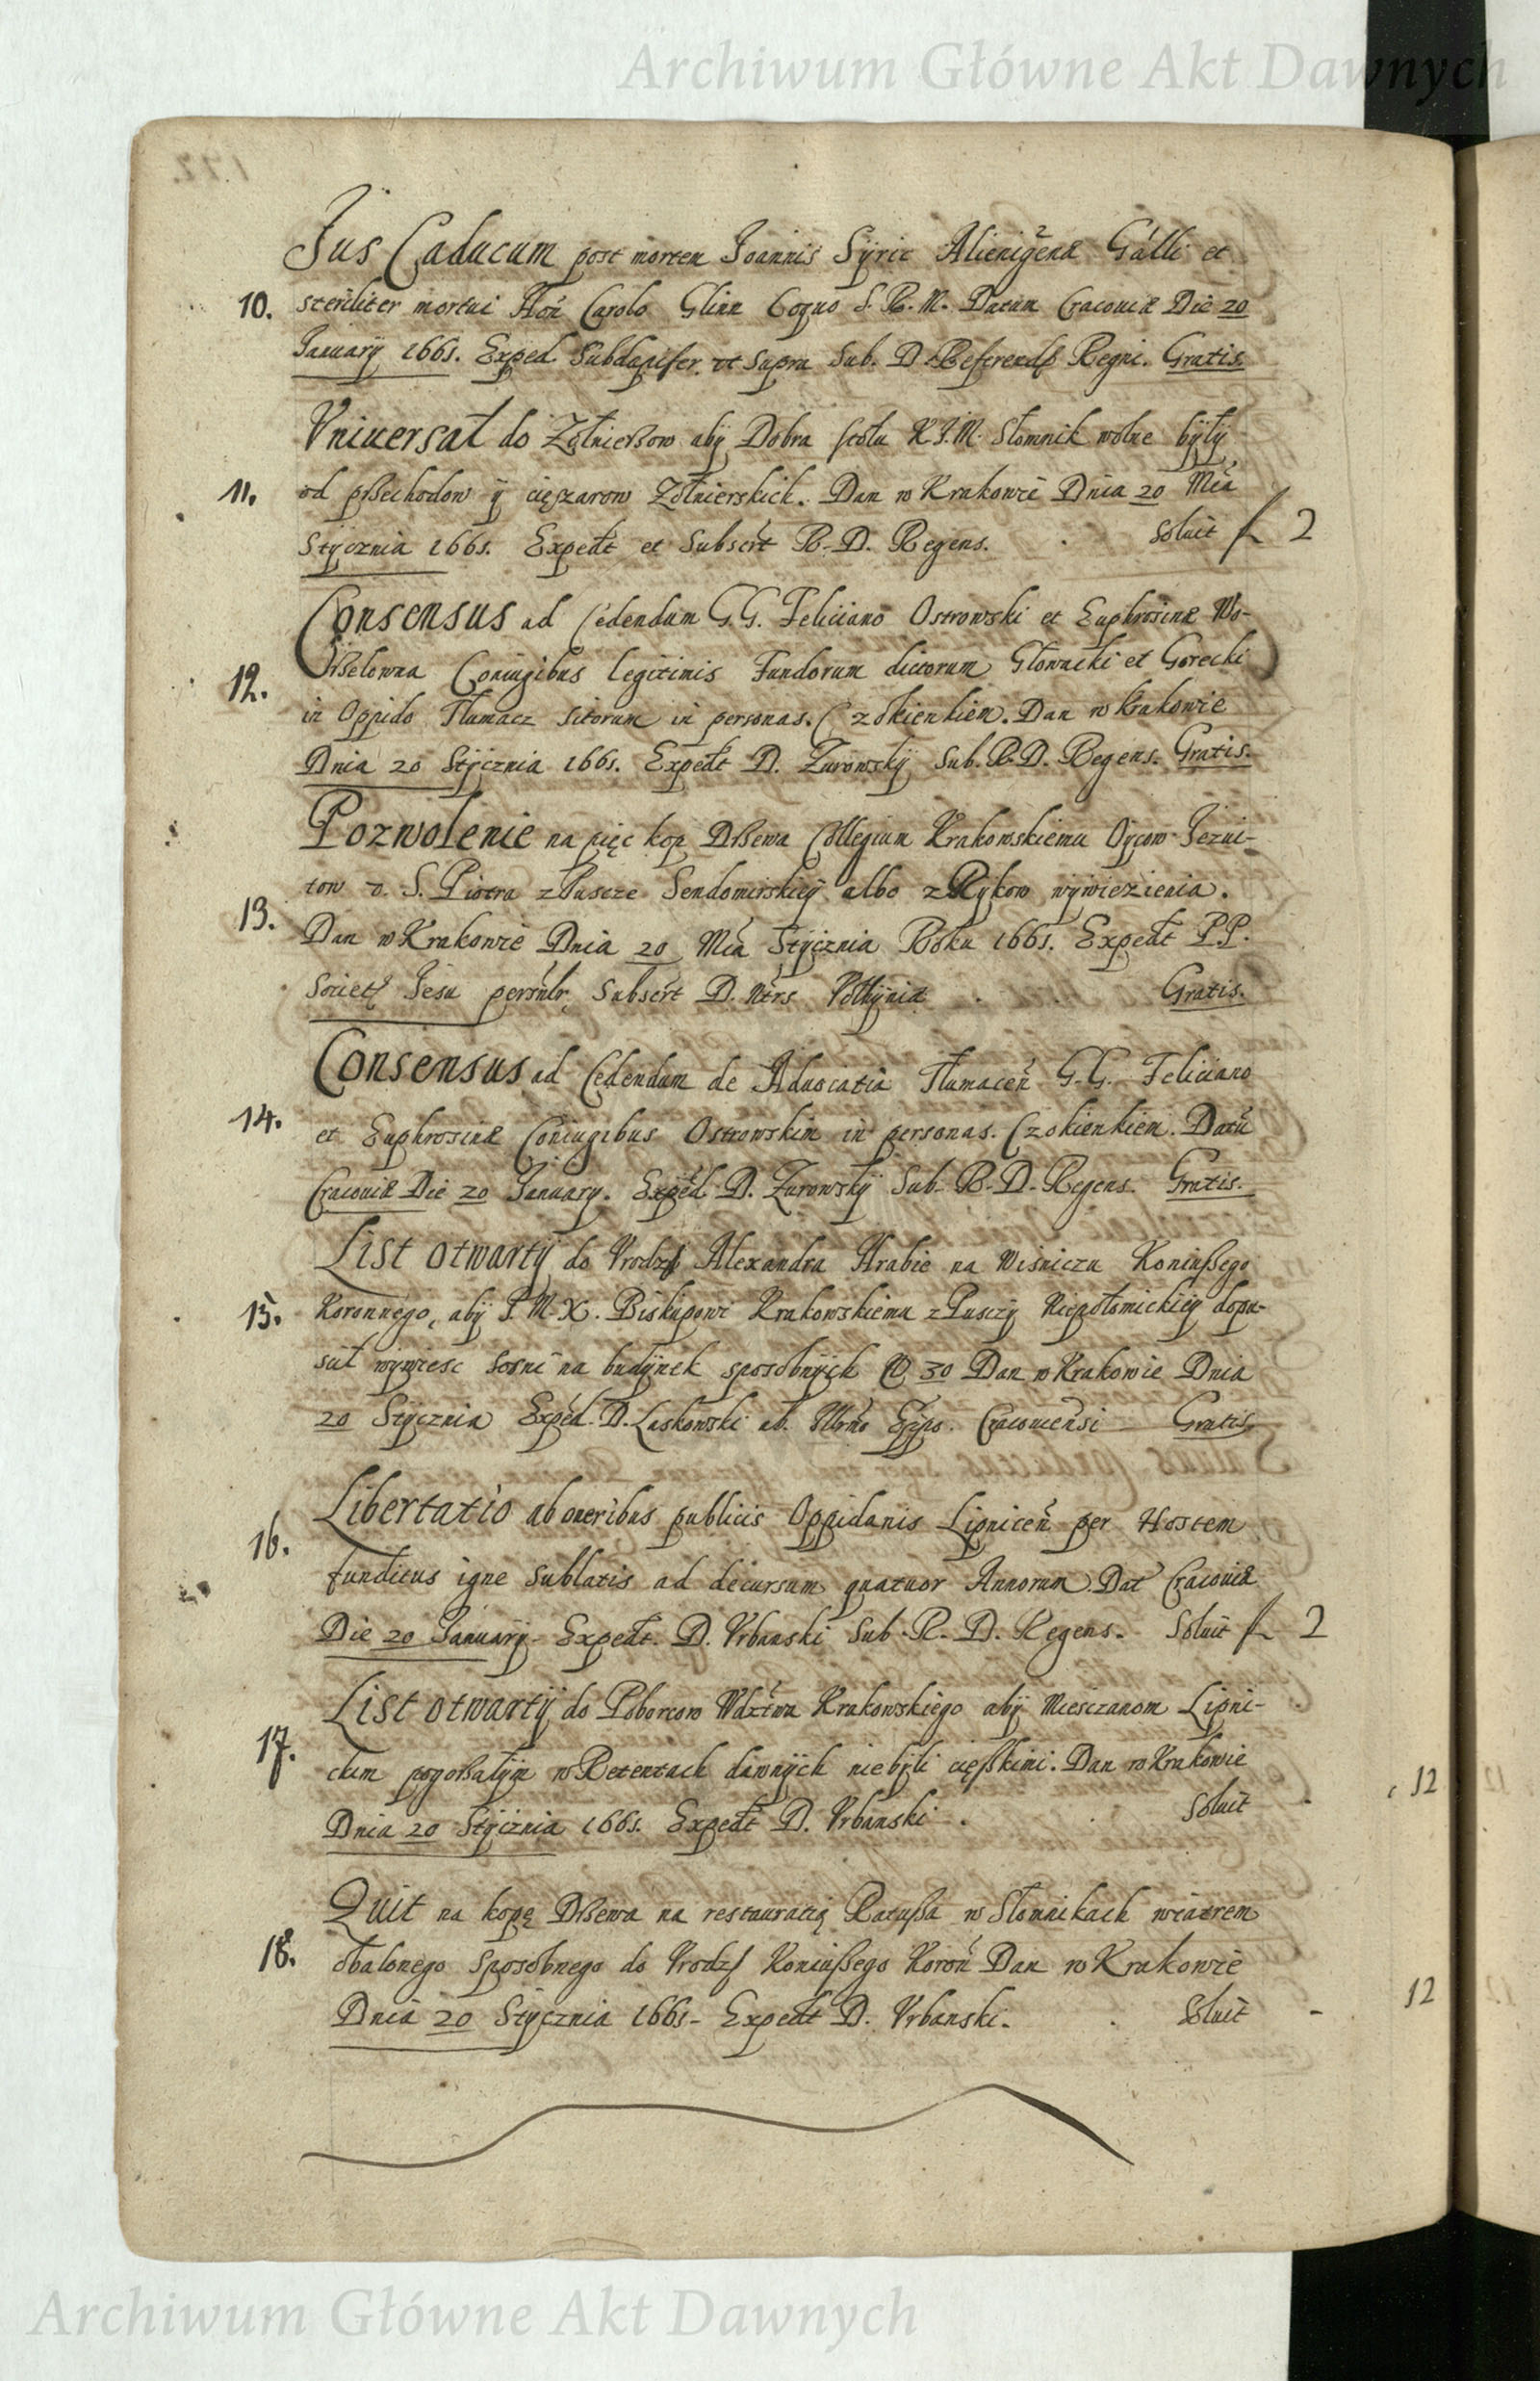 Archiwum Główne Akt Dawnych
Jus Caducum post mortem Joannis Syric Alienigenæ Galli et
10. steriliter mortui Hon Carolo Glinn Coquo S. R. M. Datum Cracoviæ Die 20
January 1661. Exped Subdapifer ut supra Sub. D. Referend Regni. Gratis.
Vniuersał do Zołnierßow aby Dobra stołu K.J.M. Słomnik wolne były
11. od pßechodow y cięszarow Zołnierskich. Dan w Krakowie Dnia 20 Mca
Stycznia 1661. Expedt et Subscrt R. D. Regens. Soluit f 2
Consensus ad Cedendum G.G. Feliciano Ostrowski et Euphrosinæ Wo-
ßelowna Coniugibus legitimis Fundorum dictorum Głowacki et Gorecki
12. in Oppido Tłumacz sitorum in personas. Czokienkiem. Dan w Krakowie
Dnia 20 Stycznia 1661. Expedt D. Zurowsky Sub. R. D. Regens. Gratis.
Pozwolenie na pięc kop Drßewa Collegium Krakowskiemu Oycow Jezui-
tow v. S. Piotra z Puscze Sendomirskiey albo z Rykow wywiezienia.
13. Dan w Krakowie Dnia 20 Mca Stycznia Roku 1661. Expedt P.P.
Societ Jesu Subscrt D. Gratis.
Consensus ad Cedendum de Aduocatia Tłumacen G.G. Feliciano
14. et Euphrosinæ Coniugibus Ostrowskim in personas. Czokienkiem. Datu
Cracouiæ Die 20 January. Exped. D. Zurowsky Sub. R. D. Regens. Gratis.
List otwarty do Vrodz Alexandra Hrabie na Wisniczu Koniußego
15. Koronnego, aby J. M. X. Biskupowi Krakowskiemu z Pusczy Niepołomickiey dopu-
scił wywiesc sosni na budynek sposobnych No 30 Dan w Krakowie Dnia
20 Stycznia Exped. D. Laskowski ab. Illrmo Eppo. Cracouiensi Gratis.
Libertatio ab oneribus publicis Oppidanis Lipnicen per Hostem
16. funditus igne sublatis ad decursum quatuor Annorum Dat Cracouiæ
Die 20 January. Expedt. D. Vrbanski Sub. R. D. Regens. Soluit f 2
List otwarty do Poborcow Wdztwa Krakowskiego aby Miesczanom Lipni-
17. ckim pogorßałym w Retentach dawnych nie byli cięßkimi. Dan w Krakowie
Dnia 20 Stycznia 1661. Expedt D. Vrbanski. Soluit . 12
Quit na kopę Drßewa na restauratią Ratußa w Słomnikach wiatrem
18. obalonego sposobnego do Vrodz Koniußego Koron Dan w Krakowie
Dnia 20 Stycznia 1661. Expedt D. Vrbanski. Soluit - 12
Archiwum Główne Akt Dawnych